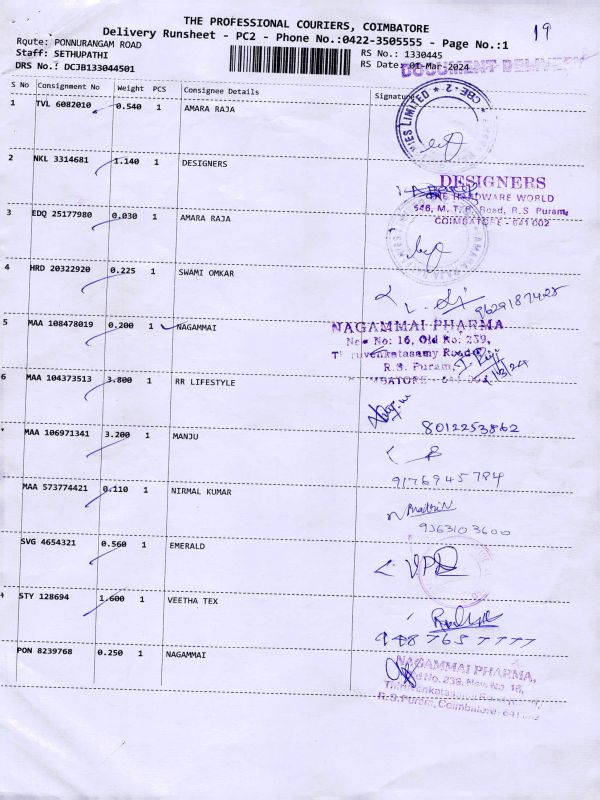 THE PROFESSIONAL COURIERS, COIMBATORE
19
Delivery Runsheet - PC2 - Phone No.:0422-3505555 - Page No.:1
Route: PONNURANGAM ROAD
RS No.: 1330445
Staff: SETHUPATHI
RS Date: 01-Mar-2024
DRS No.: DCJB133044501
DOCUMENT DELIVERY
S No Consignment No Weight PCS Consignee Details Signature
1 TVL 6082010 0.540 1 AMARA RAJA
LIMITED * CBE-2 *
2 NKL 3314681 1.140 1 DESIGNERS
DESIGNERS
HARDWARE WORLD
546, M. T. P. Road, R.S Puram,
COIMBATORE - 641 002
3 EDQ 25177980 0.030 1 AMARA RAJA
4 HRD 20322920 0.225 1 SWAMI OMKAR
9629187425
5 MAA 108478019 0.200 1 NAGAMMAI
NAGAMMAI PHARMA
New No: 16, Old No. 239,
Road
R.S. Puram,
6 MAA 104373513 3.800 1 RR LIFESTYLE
8012253862
MAA 106971341 3.200 1 MANJU
9176945784
MAA 573774421 0.110 1 NIRMAL KUMAR
9363103600
SVG 4654321 0.560 1 EMERALD
STY 128694 1.600 1 VEETHA TEX
PON 8239768 0.250 1 NAGAMMAI
NAGAMMAI PHARMA,
Old No. 239, New No. 16,
R.S.Puram, Coimbatore-641